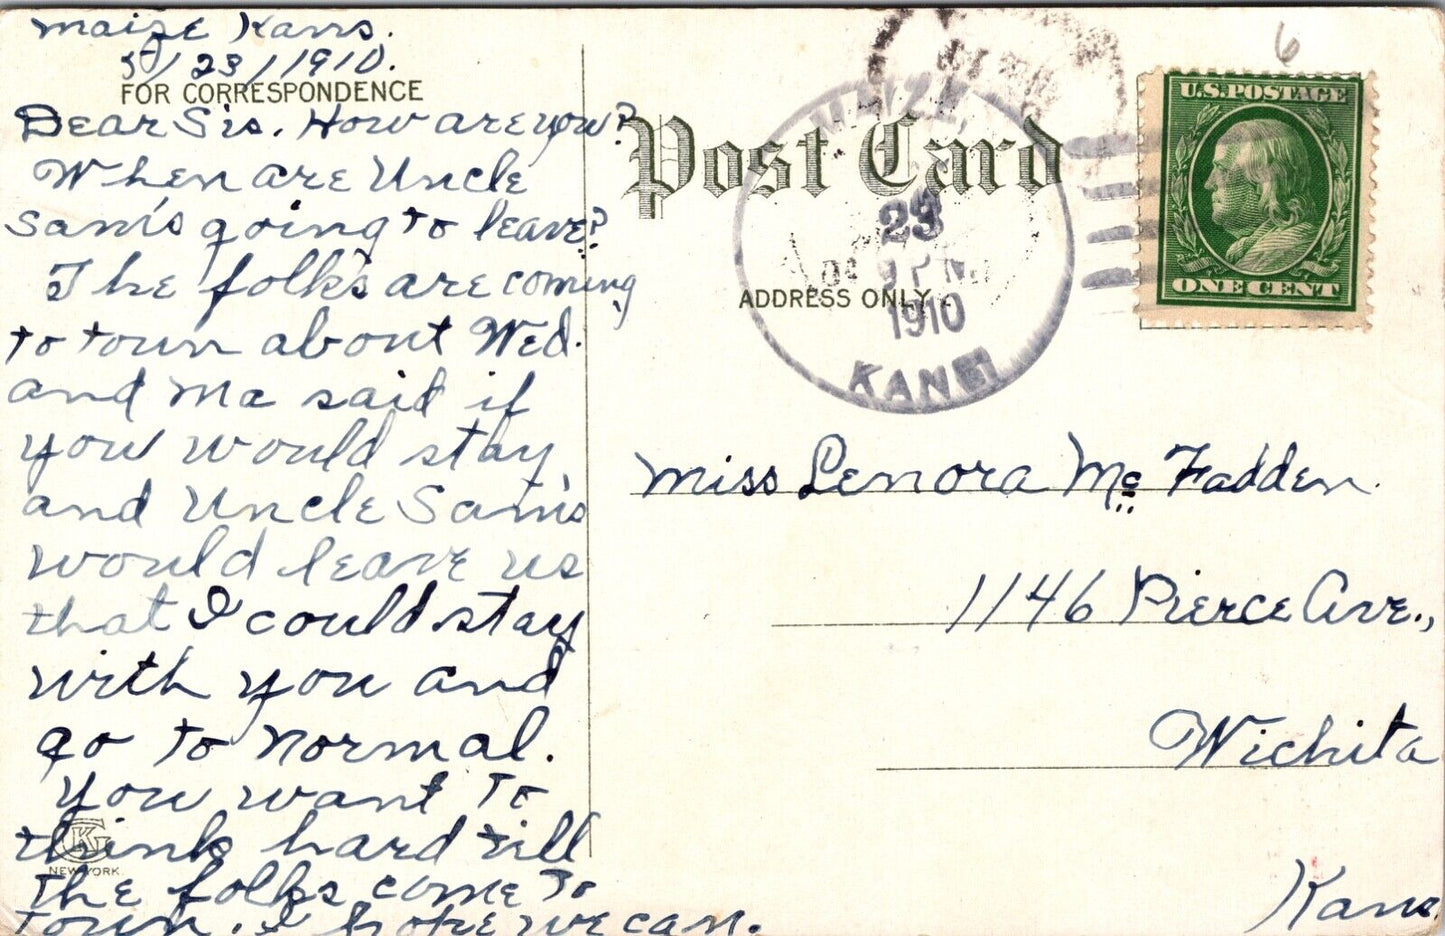 Maize Kans.
5/23/1910.
FOR CORRESPONDENCE
Dear Sis. How are you?
When are Uncle
Sam's going to leave?
The folks are coming
to town about Wed.
and Ma said if
you would stay
and Uncle Sam's
would leave us
that I could stay
with you and
go to Normal.
You want to
think hard till
the folks come to
town. I hope we can.
NEW YORK.
Post Card
ADDRESS ONLY.
MAIZE,
23
1910
KANS
6
U.S. POSTAGE
ONE CENT
Miss Lenora McFadden.
1146 Pierce Ave.,
Wichita
Kans.